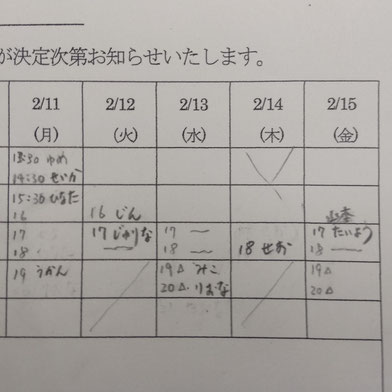 が決定次第お知らせいたします。
2/11 2/12 2/13 2/14 2/15
(月) (火) (水) (木) (金)
13:30 ゆめ
14:30 せいか
15:30 ひなた
16 16 じん
17 17 じゅりな 17 〜 17 たいよう
18 18 〜 18 せお 18
19 うかん 19△ みこ 19△
20△ りおな 20△